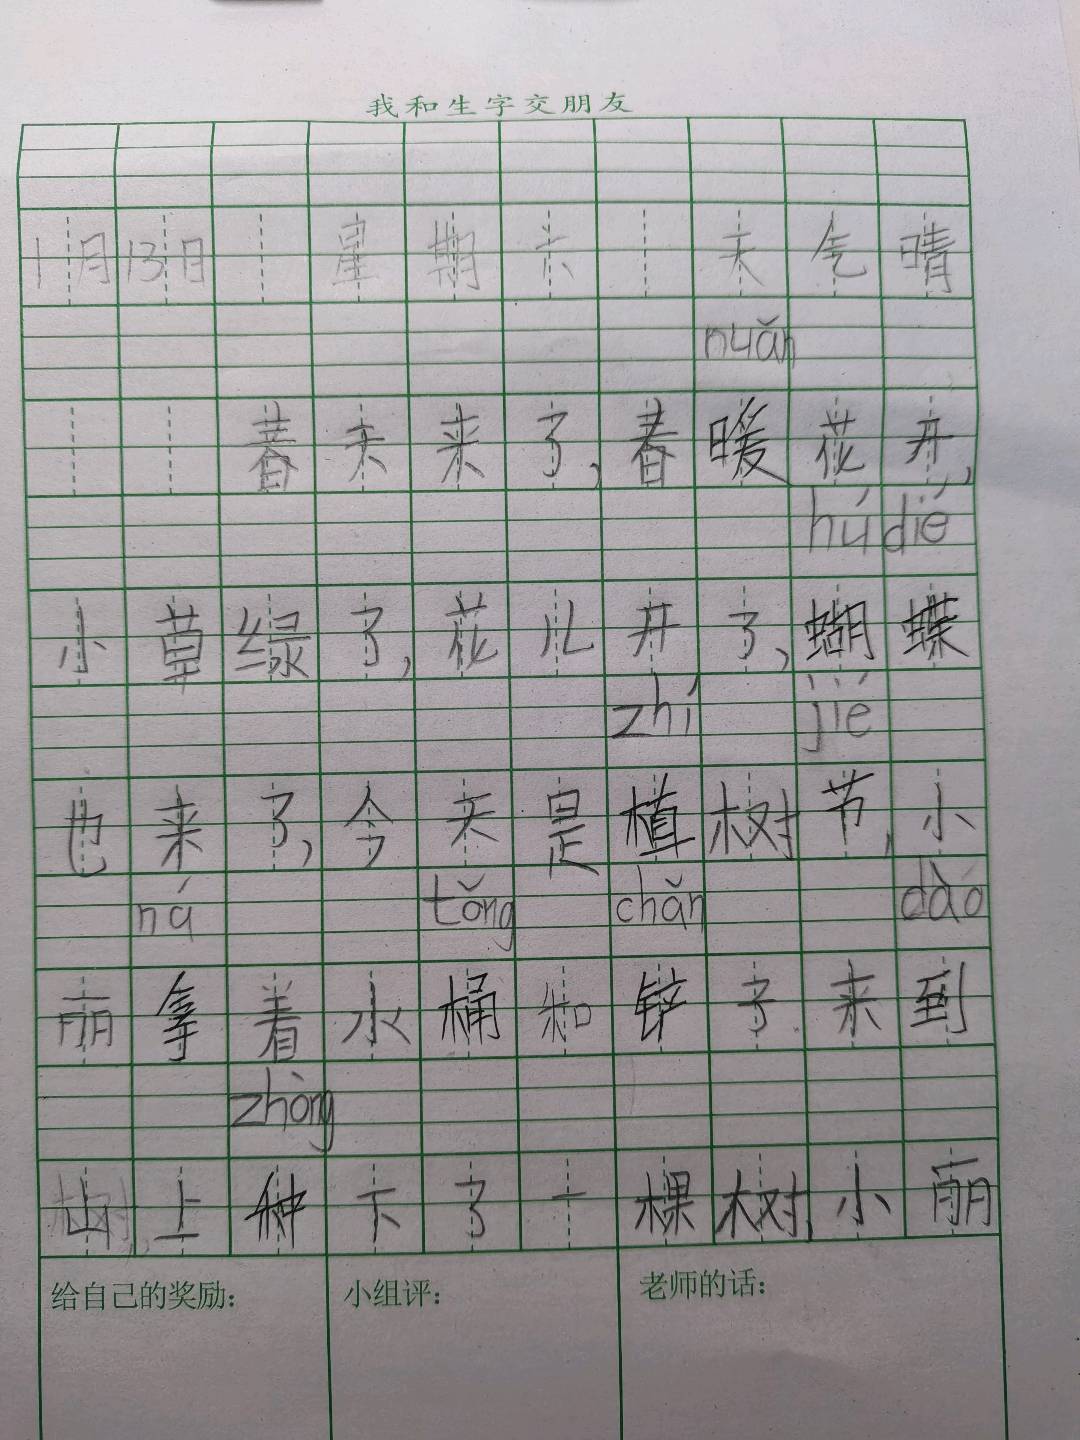 我和生字交朋友
1月13日 星期六 天气晴
nuǎn
春天来了,春暖花开,
hú dié
小草绿了,花儿开了,蝴蝶
zhí jié
也来了,今天是植树节,小
ná tǒng chǎn dào
丽拿着水桶和铲子来到
zhòng
山上种下了一棵树,小丽
给自己的奖励: 小组评: 老师的话: